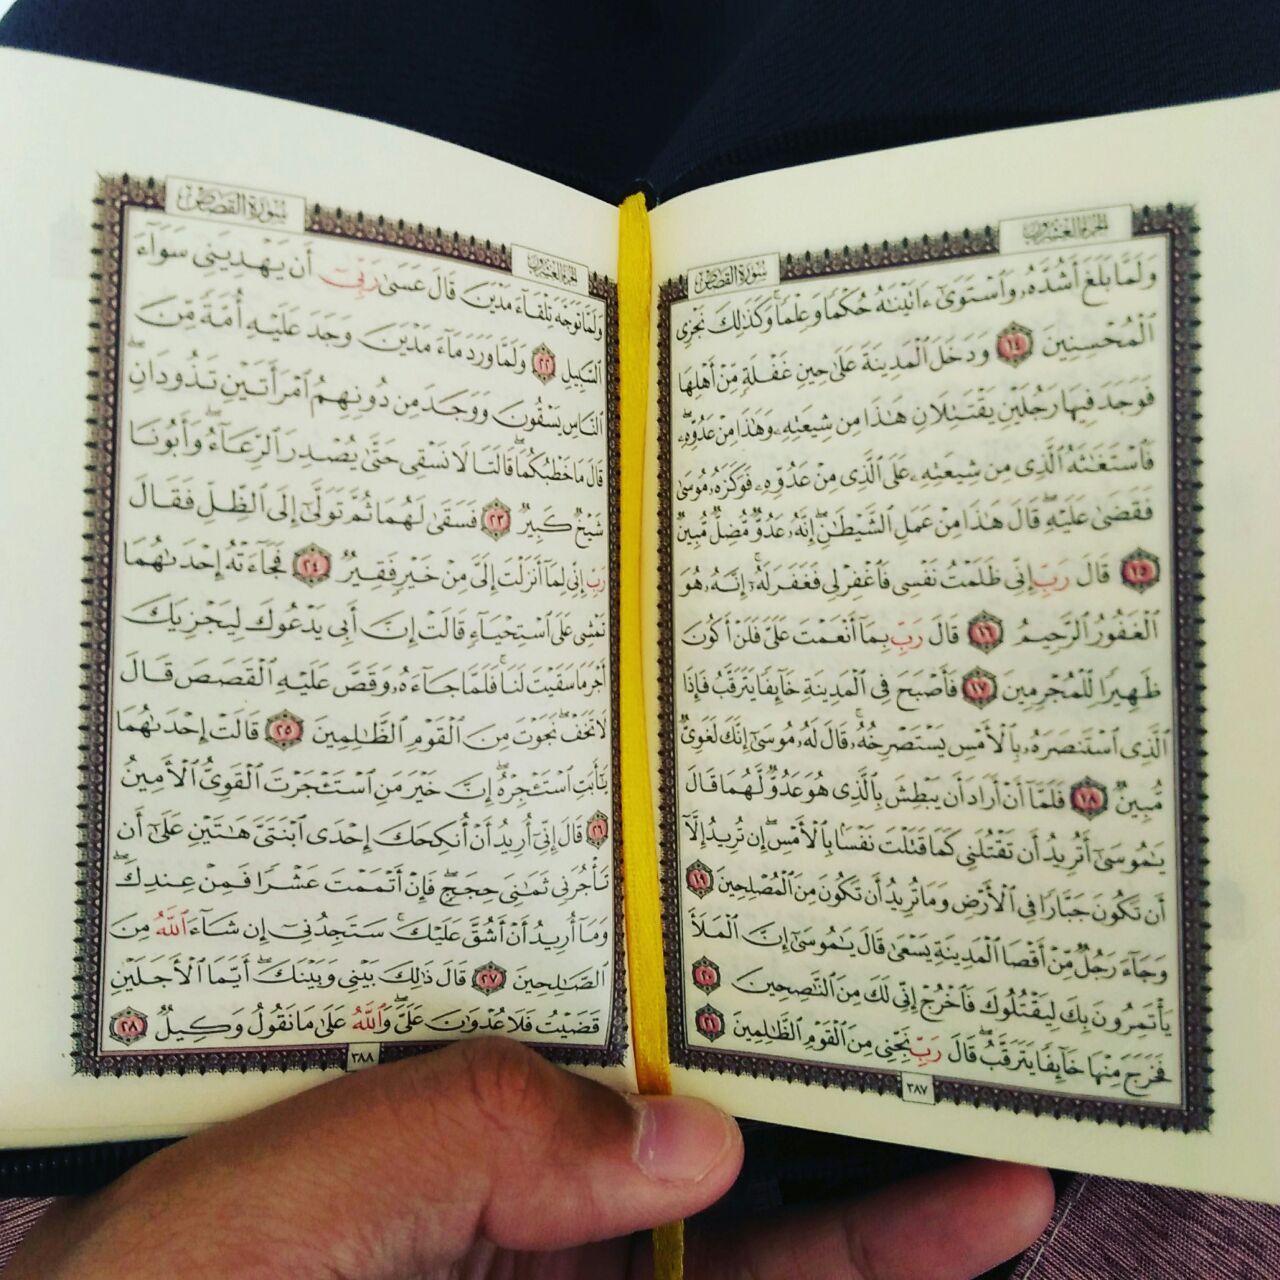 الجزء العشرون
سورة القصص
وَلَمَّا بَلَغَ أَشُدَّهُۥ وَٱسْتَوَىٰٓ ءَاتَيْنَٰهُ حُكْمًا وَعِلْمًا ۚ وَكَذَٰلِكَ نَجْزِى
ٱلْمُحْسِنِينَ ١٤ وَدَخَلَ ٱلْمَدِينَةَ عَلَىٰ حِينِ غَفْلَةٍ مِّنْ أَهْلِهَا
فَوَجَدَ فِيهَا رَجُلَيْنِ يَقْتَتِلَانِ هَٰذَا مِن شِيعَتِهِۦ وَهَٰذَا مِنْ عَدُوِّهِۦ ۖ
فَٱسْتَغَٰثَهُ ٱلَّذِى مِن شِيعَتِهِۦ عَلَى ٱلَّذِى مِنْ عَدُوِّهِۦ فَوَكَزَهُۥ مُوسَىٰ
فَقَضَىٰ عَلَيْهِ ۖ قَالَ هَٰذَا مِنْ عَمَلِ ٱلشَّيْطَٰنِ ۖ إِنَّهُۥ عَدُوٌّ مُّضِلٌّ مُّبِينٌ
١٥ قَالَ رَبِّ إِنِّى ظَلَمْتُ نَفْسِى فَٱغْفِرْ لِى فَغَفَرَ لَهُۥٓ ۚ إِنَّهُۥ هُوَ
ٱلْغَفُورُ ٱلرَّحِيمُ ١٦ قَالَ رَبِّ بِمَآ أَنْعَمْتَ عَلَىَّ فَلَنْ أَكُونَ
ظَهِيرًا لِّلْمُجْرِمِينَ ١٧ فَأَصْبَحَ فِى ٱلْمَدِينَةِ خَآئِفًا يَتَرَقَّبُ فَإِذَا
ٱلَّذِى ٱسْتَنصَرَهُۥ بِٱلْأَمْسِ يَسْتَصْرِخُهُۥ ۚ قَالَ لَهُۥ مُوسَىٰٓ إِنَّكَ لَغَوِىٌّ
مُّبِينٌ ١٨ فَلَمَّآ أَنْ أَرَادَ أَن يَبْطِشَ بِٱلَّذِى هُوَ عَدُوٌّ لَّهُمَا قَالَ
يَٰمُوسَىٰٓ أَتُرِيدُ أَن تَقْتُلَنِى كَمَا قَتَلْتَ نَفْسًۢا بِٱلْأَمْسِ ۖ إِن تُرِيدُ إِلَّآ
أَن تَكُونَ جَبَّارًا فِى ٱلْأَرْضِ وَمَا تُرِيدُ أَن تَكُونَ مِنَ ٱلْمُصْلِحِينَ ١٩
وَجَآءَ رَجُلٌ مِّنْ أَقْصَا ٱلْمَدِينَةِ يَسْعَىٰ قَالَ يَٰمُوسَىٰٓ إِنَّ ٱلْمَلَأَ
يَأْتَمِرُونَ بِكَ لِيَقْتُلُوكَ فَٱخْرُجْ إِنِّى لَكَ مِنَ ٱلنَّٰصِحِينَ ٢٠
فَخَرَجَ مِنْهَا خَآئِفًا يَتَرَقَّبُ ۖ قَالَ رَبِّ نَجِّنِى مِنَ ٱلْقَوْمِ ٱلظَّٰلِمِينَ ٢١
٣٨٧
الجزء العشرون
سورة القصص
وَلَمَّا تَوَجَّهَ تِلْقَآءَ مَدْيَنَ قَالَ عَسَىٰ رَبِّىٓ أَن يَهْدِيَنِى سَوَآءَ
ٱلسَّبِيلِ ٢٢ وَلَمَّا وَرَدَ مَآءَ مَدْيَنَ وَجَدَ عَلَيْهِ أُمَّةً مِّنَ
ٱلنَّاسِ يَسْقُونَ وَوَجَدَ مِن دُونِهِمُ ٱمْرَأَتَيْنِ تَذُودَانِ ۖ
قَالَ مَا خَطْبُكُمَا ۖ قَالَتَا لَا نَسْقِى حَتَّىٰ يُصْدِرَ ٱلرِّعَآءُ ۖ وَأَبُونَا
شَيْخٌ كَبِيرٌ ٢٣ فَسَقَىٰ لَهُمَا ثُمَّ تَوَلَّىٰٓ إِلَى ٱلظِّلِّ فَقَالَ
رَبِّ إِنِّى لِمَآ أَنزَلْتَ إِلَىَّ مِنْ خَيْرٍ فَقِيرٌ ٢٤ فَجَآءَتْهُ إِحْدَىٰهُمَا
تَمْشِى عَلَى ٱسْتِحْيَآءٍ قَالَتْ إِنَّ أَبِى يَدْعُوكَ لِيَجْزِيَكَ
أَجْرَ مَا سَقَيْتَ لَنَا ۚ فَلَمَّا جَآءَهُۥ وَقَصَّ عَلَيْهِ ٱلْقَصَصَ قَالَ
لَا تَخَفْ ۖ نَجَوْتَ مِنَ ٱلْقَوْمِ ٱلظَّٰلِمِينَ ٢٥ قَالَتْ إِحْدَىٰهُمَا
يَٰٓأَبَتِ ٱسْتَـْٔجِرْهُ ۖ إِنَّ خَيْرَ مَنِ ٱسْتَـْٔجَرْتَ ٱلْقَوِىُّ ٱلْأَمِينُ
٢٦ قَالَ إِنِّىٓ أُرِيدُ أَنْ أُنكِحَكَ إِحْدَى ٱبْنَتَىَّ هَٰتَيْنِ عَلَىٰٓ أَن
تَأْجُرَنِى ثَمَٰنِىَ حِجَجٍ ۖ فَإِنْ أَتْمَمْتَ عَشْرًا فَمِنْ عِندِكَ ۖ
وَمَآ أُرِيدُ أَنْ أَشُقَّ عَلَيْكَ ۚ سَتَجِدُنِىٓ إِن شَآءَ ٱللَّهُ مِنَ
ٱلصَّٰلِحِينَ ٢٧ قَالَ ذَٰلِكَ بَيْنِى وَبَيْنَكَ ۖ أَيَّمَا ٱلْأَجَلَيْنِ
قَضَيْتُ فَلَا عُدْوَٰنَ عَلَىَّ ۖ وَٱللَّهُ عَلَىٰ مَا نَقُولُ وَكِيلٌ ٢٨
٣٨٨